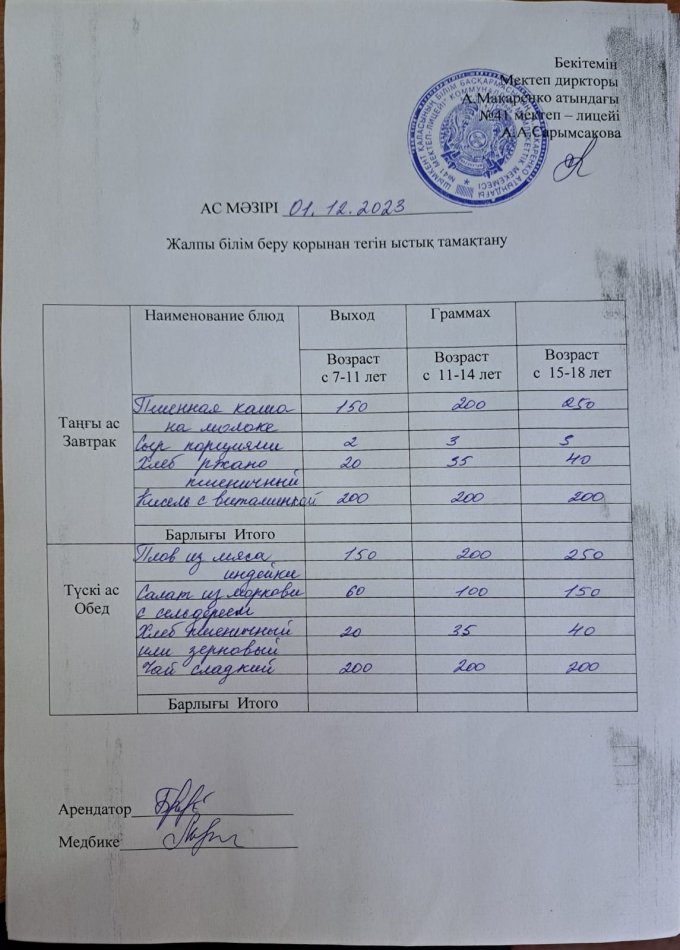 Бекітемін
Мектеп диркторы
А.Макаренко атындағы
№41 мектеп – лицейі
А.А Сарымсакова
АС МӘЗІРІ 01.12.2023
Жалпы білім беру қорынан тегін ыстық тамақтану
Наименование блюд Выход Граммах
Возраст с 7-11 лет Возраст с 11-14 лет Возраст с 15-18 лет
Таңғы ас
Завтрак
Пшенная каша 150 200 250
на молоке
Сыр порциями 2 3 3
Хлеб ржано 20 35 40
пшеничный
Кисель с витаминкой 200 200 200
Барлығы Итого
Түскі ас
Обед
Плов из мяса 150 200 250
индейки
Салат из моркови 60 100 150
с сельдереем
Хлеб пшеничный 20 35 40
или зерновый
Чай сладкий 200 200 200
Барлығы Итого
Арендатор
Медбике